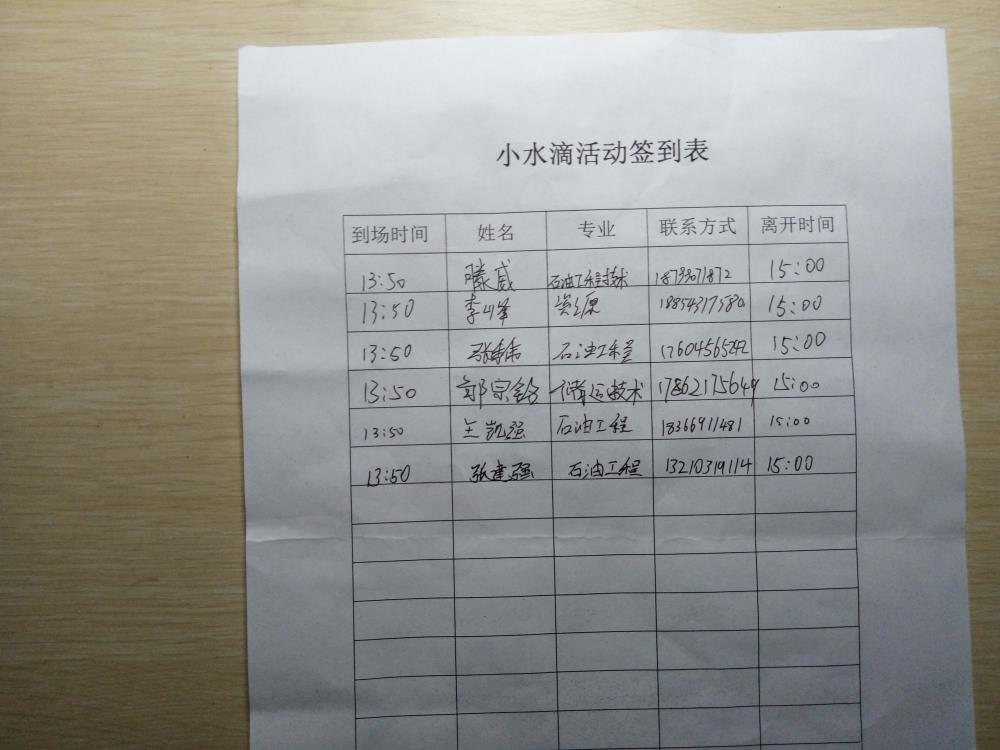 小水滴活动签到表
到场时间 姓名 专业 联系方式 离开时间
13:50 滕威 石油工程技术 15:00
13:50 李峰 资源 15:00
13:50 石油工程 17604565242 15:00
13:50 郭宗铭 储运技术 17862175649 15:00
13:50 王凯强 石油工程 18366911481 15:00
13:50 张建强 石油工程 13210319114 15:00